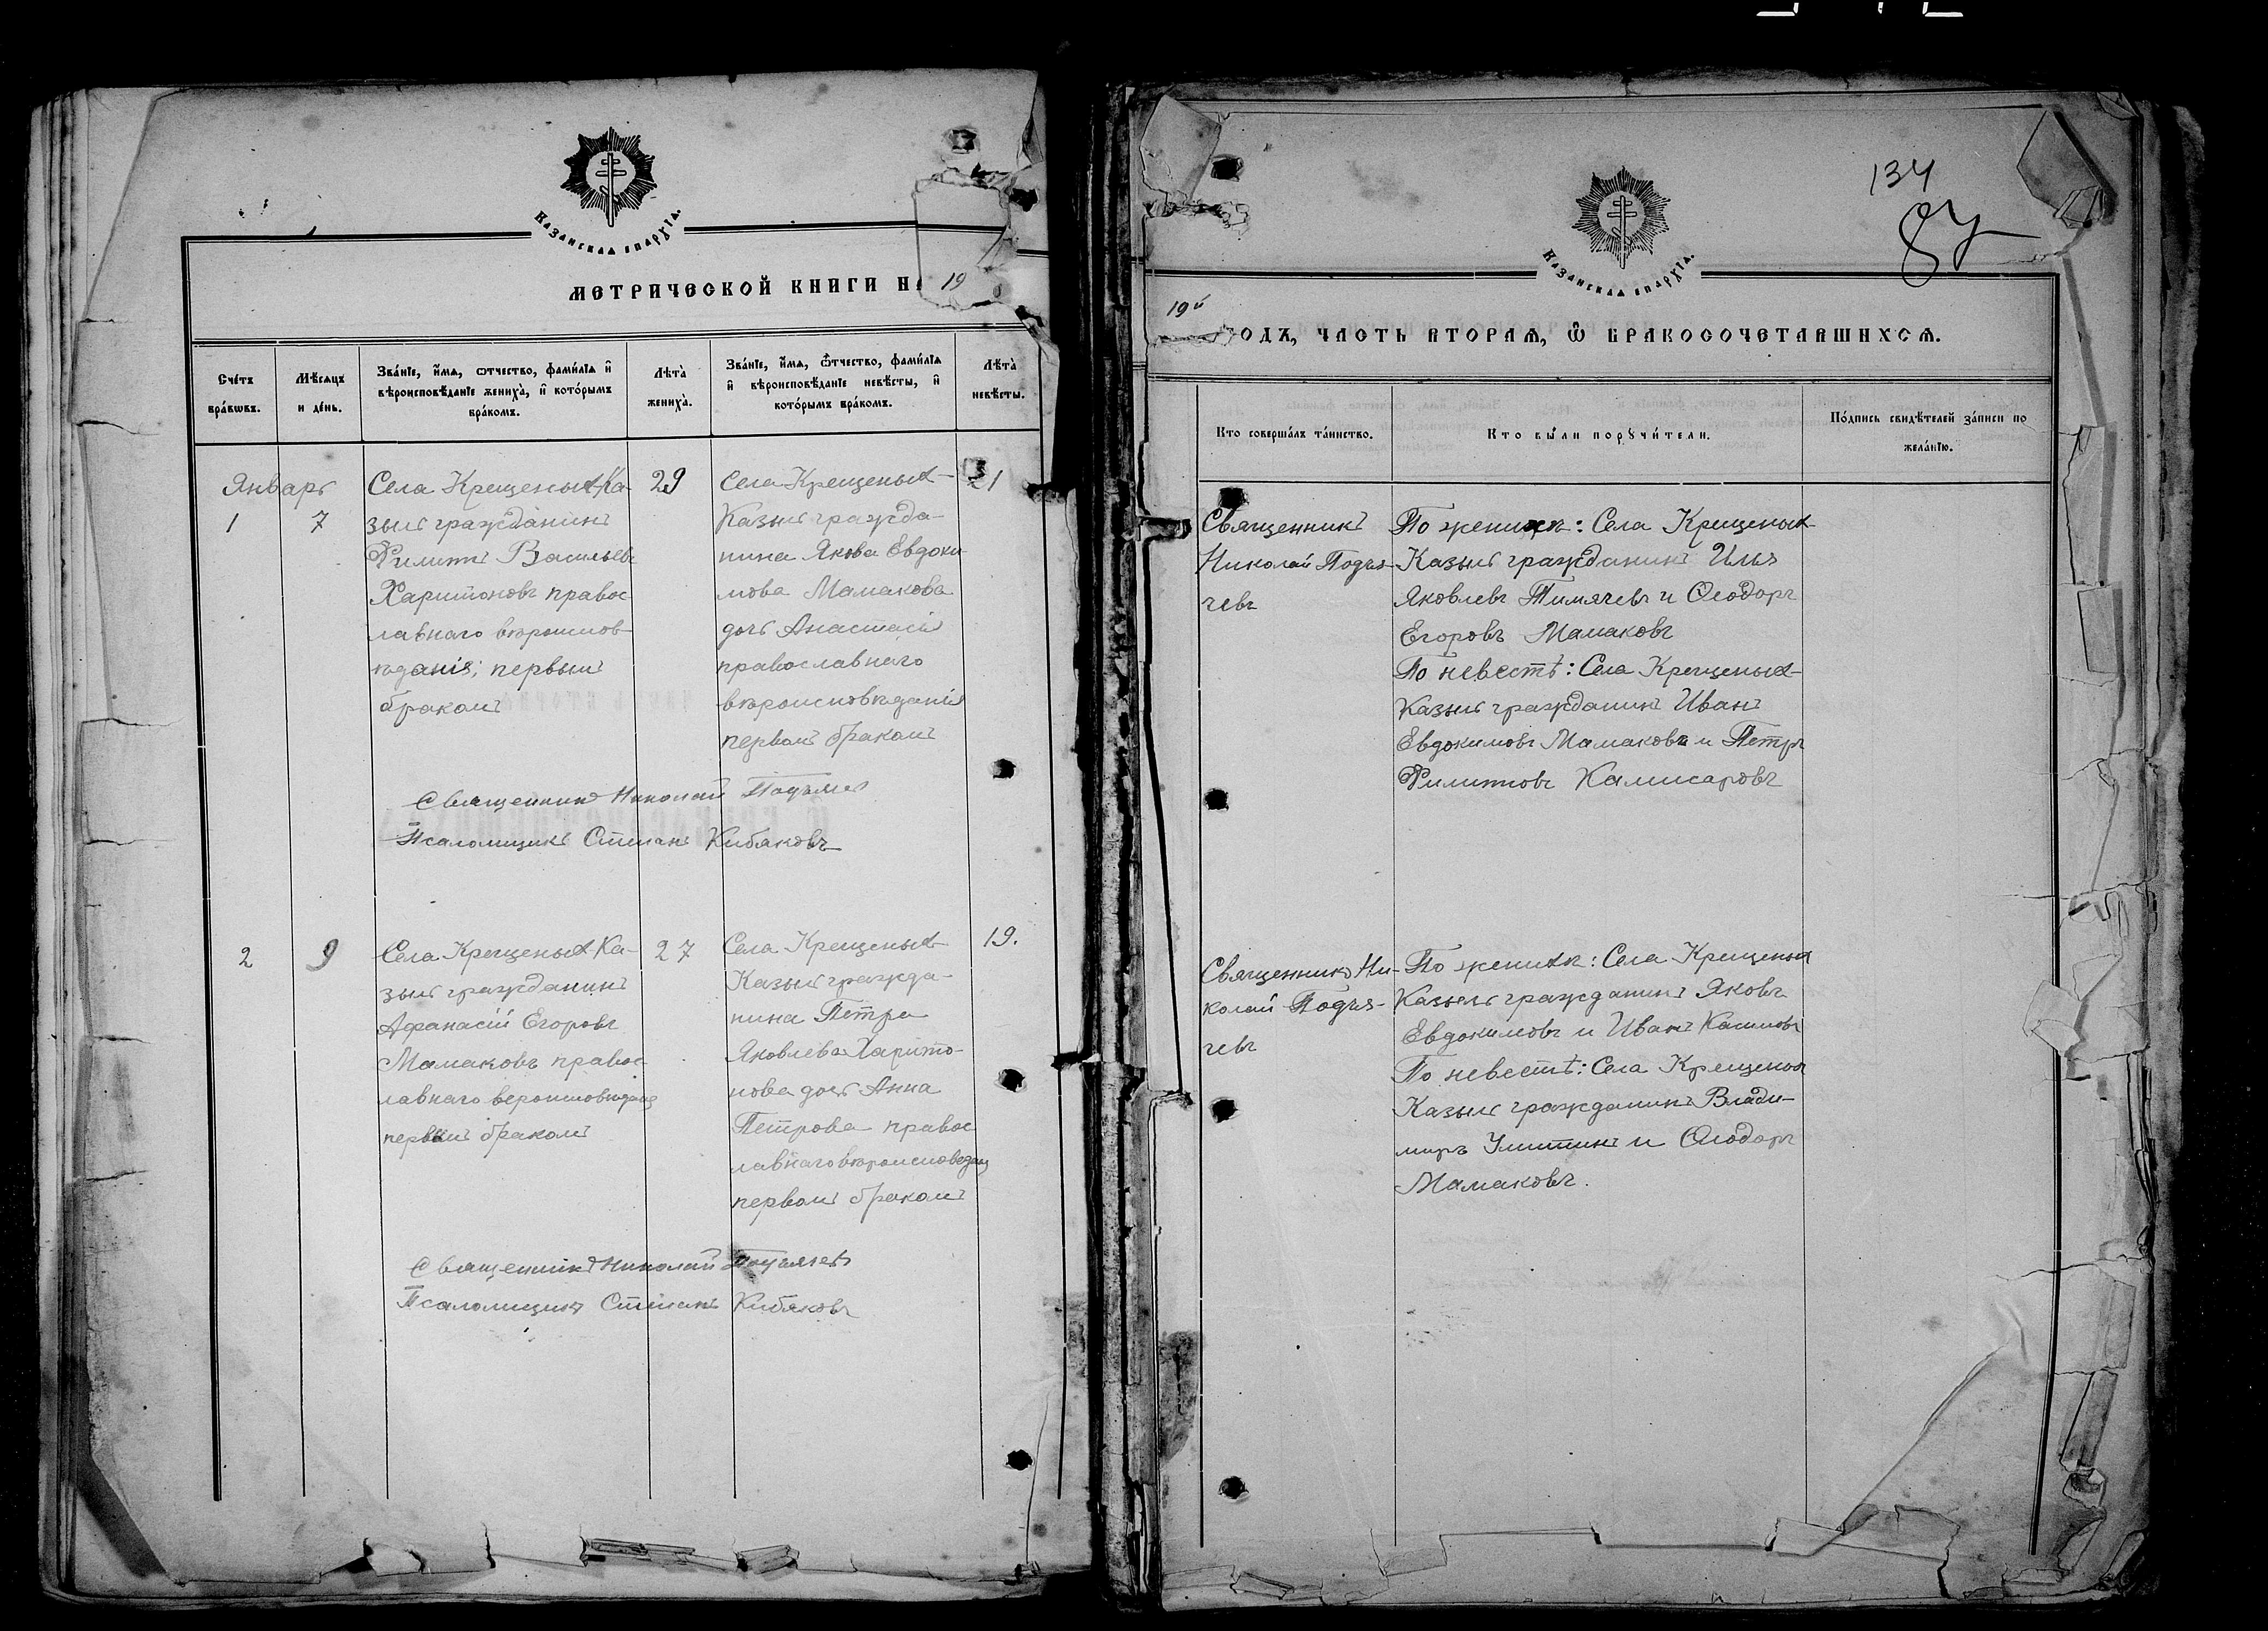 Казанская епархїа.
МЕТРИЧЕСКОЙ КНИГИ НА 19
Сче́тъ бра́кѡвъ.
Мѣ́сяцъ и де́нь.
Зва́нїе, и҆́мя, ѻтчество, фами́лїя и҆ вѣроисповѣ́данїе жениха̀, и҆ кото́рымъ бра́комъ.
Лѣта̀ жениха̀.
Зва́нїе, и҆́мя, ѻтчество, фами́лїя и҆ вѣроисповѣ́данїе невѣ́сты, и҆ кото́рымъ бра́комъ.
Лѣта̀ невѣ́сты.
Январь
1
7
Села Крещеныхъ Ка-
зыль гражданинъ
Филиппъ Васильевъ
Харитоновъ правос
лавнаго вѣроиспов-
ѣданія; первымъ
бракомъ
29
Села Крещеныхъ-
Казыль гражда-
нина Якова Евдоки-
мова Мамакова
дочь Анастасія
православнаго
вѣроисповѣданія
первымъ бракомъ
21
Священникъ Николай Подъячев
Псаломщикъ Степанъ Кибяковъ
2
9
Села Крещеныхъ Ка-
зыль гражданинъ
Афанасій Егоровъ
Мамаковъ правос-
лавнаго
первымъ бракомъ
27
Села Крещеныхъ-
Казыль гражда-
нина Петра
Яковлева Харито-
нова дочь Анна
Петрова правос
лавнаго
первымъ бракомъ
19.
Священникъ Николай Подъячевъ
Псаломщикъ Степанъ Кибяковъ
134
87
Казанская епархїа.
19й
ГОДЪ, ЧАСТЬ ВТОРАЯ, Ѡ҆ БРАКОСОЧЕТАВШИХСЯ.
Кто соверша́лъ та́инство.
Кто бы́ли порꙋчи́тели.
По́дпись свидѣ́телей за́писи по жела́нїю.
Священникъ
Николай Подъя-
чевъ
По женихѣ: Села Крещеныхъ-
Казыль гражданинъ Илья
Яковлевъ Тимячевъ и Ѳеодоръ
Егоровъ Мамаковъ
По невестѣ: Села Крещеныхъ-
Казыль гражданинъ Иванъ
Евдокимовъ Мамаковъ и Петръ
Филипповъ Камисаровъ
Священникъ Ни-
колай Подъя-
чевъ
По женихѣ: Села Крещеныхъ
Казыль гражданинъ Яковъ
Евдокимовъ и Иванъ
По невестѣ: Села Крещеныхъ
Казыль гражданинъ Влади-
миръ и Ѳеодоръ
Мамаковъ.